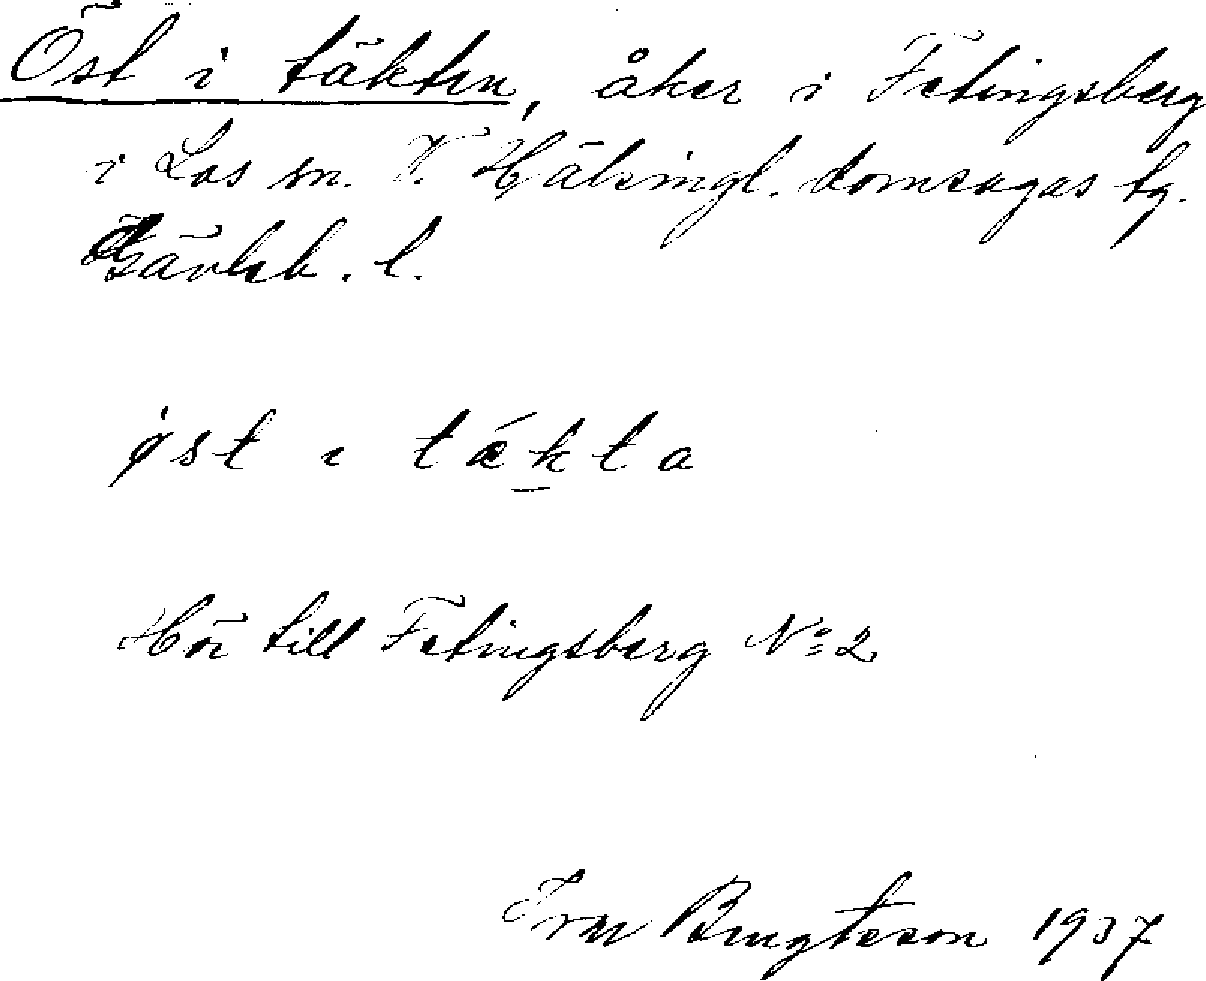 Öst i täkten, åker i Fetingsberg
i Los sn. V. Hälsingl. domsagas tg.
Gävleb. l.
øst ɩ tǽkta
Hör till Fetingsberg No 2
Bengtsson 1937